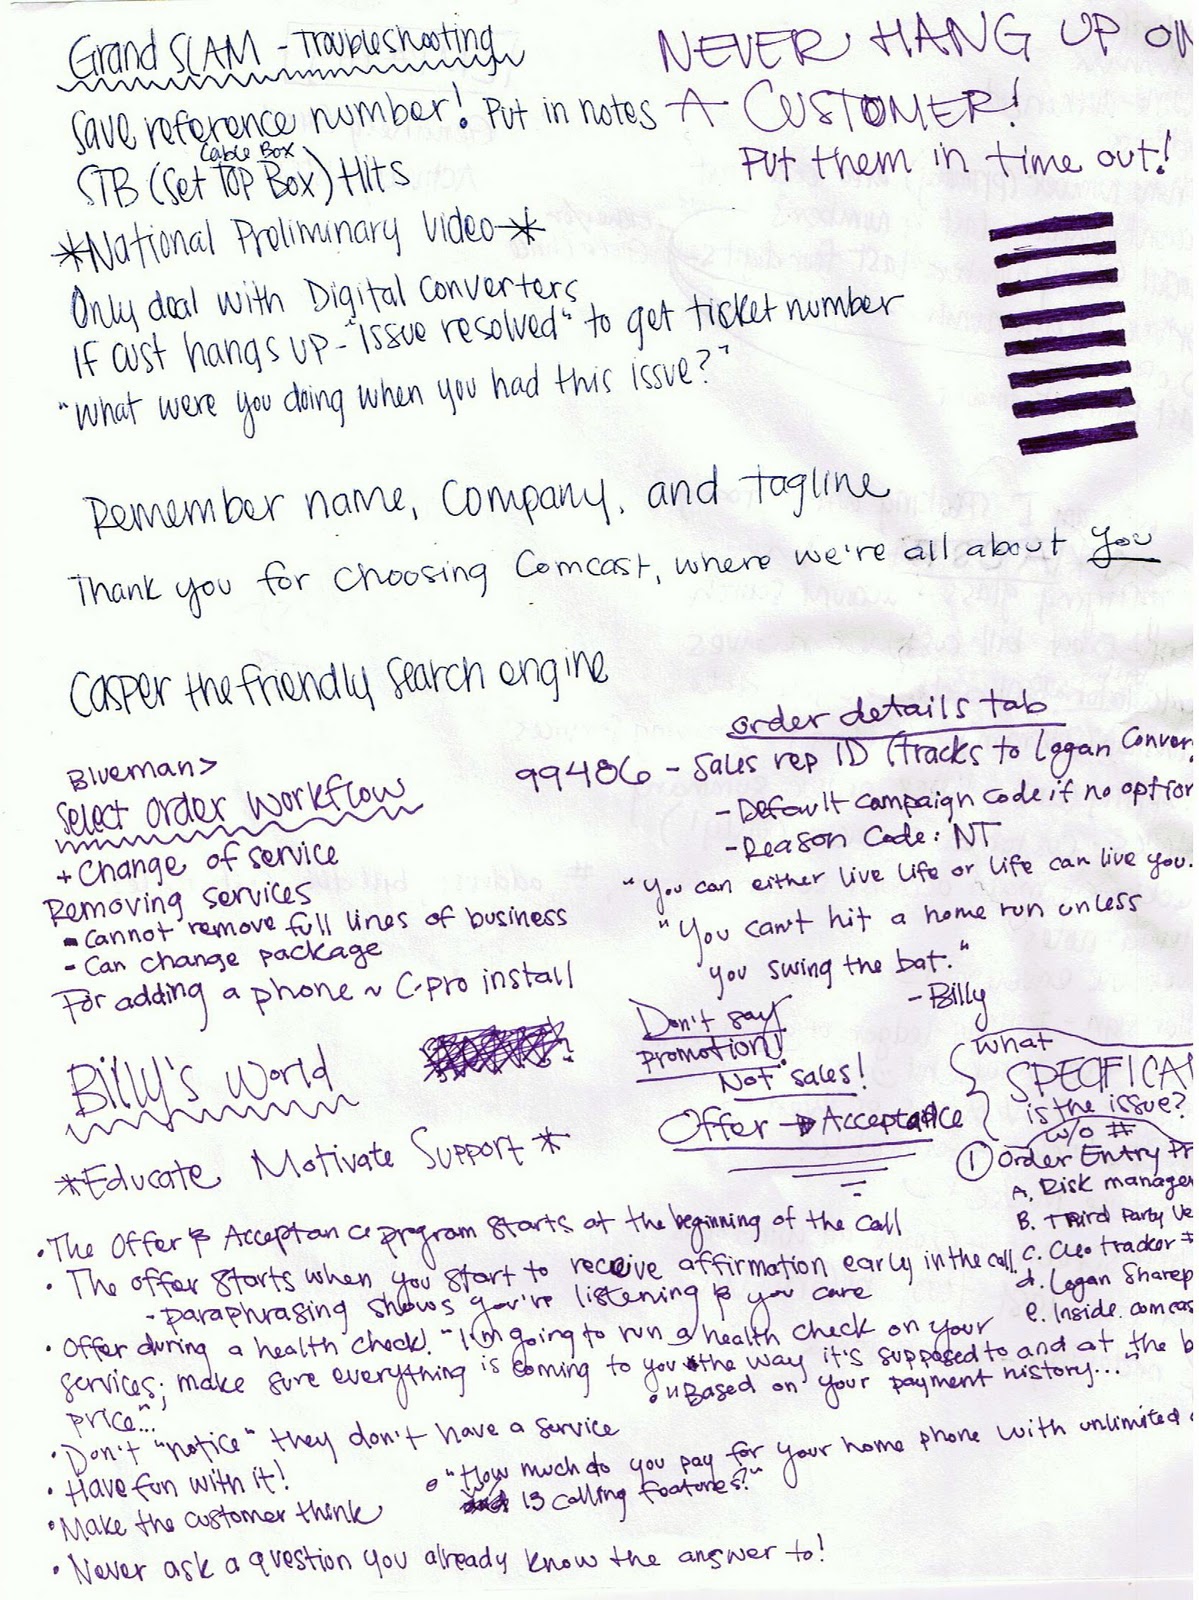 Grand SLAM - Troubleshooting
Save reference number! Put in notes
Cable Box
STB (Set TOP Box) Hits
*National Proliminary Video*
Only deal with Digital converters
If cust hangs up - "issue resolved" to get ticket number
"What were you doing when you had this issue?"
NEVER HANG UP ON
A CUSTOMER!
Put them in time out!
Remember name, Company, and tagline
Thank you for choosing Comcast, where we're all about you
Casper the friendly search engine
Blueman>
Select Order Workflow
+ Change of service
Removing services
- Cannot remove full lines of business
- Can change package
For adding a phone ~ C-pro install
order details tab
99486 - Sales rep ID (tracks to Logan
- Default campaign code if no option
- Reason Code: NT
"You can either live life or life can live you.
"You can't hit a home run unless
you swing the bat."
- Billy
Billy's World
*Educate Motivate Support*
Don't say
promotion!
Not sales!
Offer & Acceptance
What
is the issue?
w/o #
① Order Entry
A. Risk
B. Third Party
C. Cleo tracker #
d. Logan
e. Inside.
• The Offer & Acceptance program starts at the beginning of the call
• The offer starts when you start to receive affirmation early in the call.
- paraphrasing shows you're listening & you care
• Offer during a health check! "I'm going to run a health check on your
services; make sure everything is coming to you the way it's supposed to and at the
price..."
• "Based on your payment history..."
• Don't "notice" they don't have a service
• Have fun with it!
• "How much do you pay for your home phone with unlimited
w/ 13 calling features?"
• Make the customer think
• Never ask a question you already know the answer to!